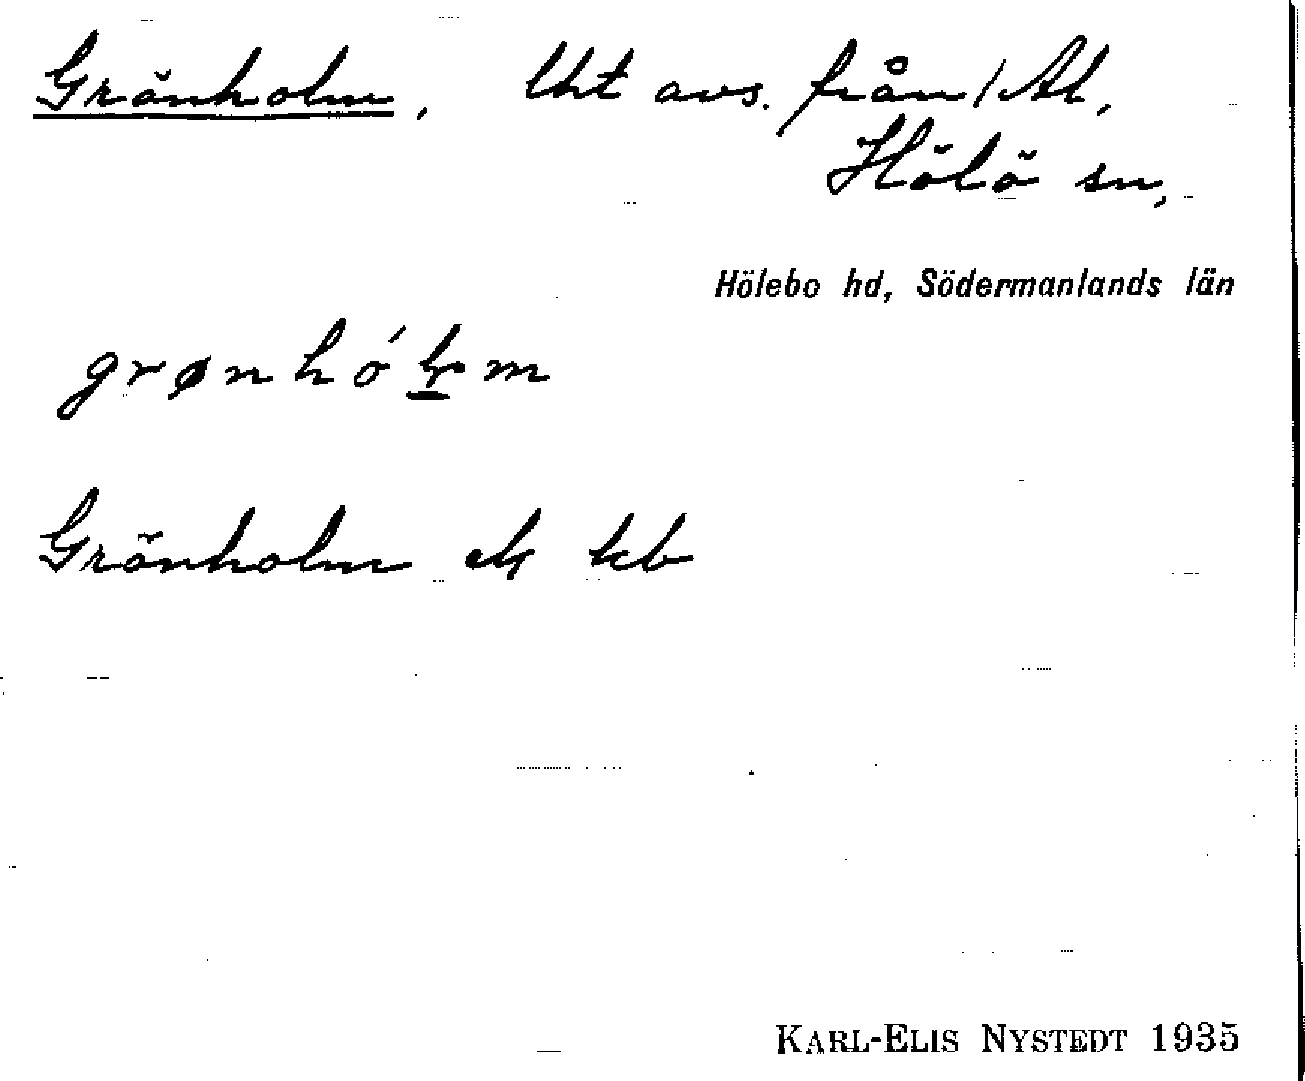 Grönholm, Lht avs. från 1/Al,
Hölö sn,
Hölebo hd, Södermanlands län
grønhólm
Grönholm ek kb
KARL-ELIS NYSTEDT 1935